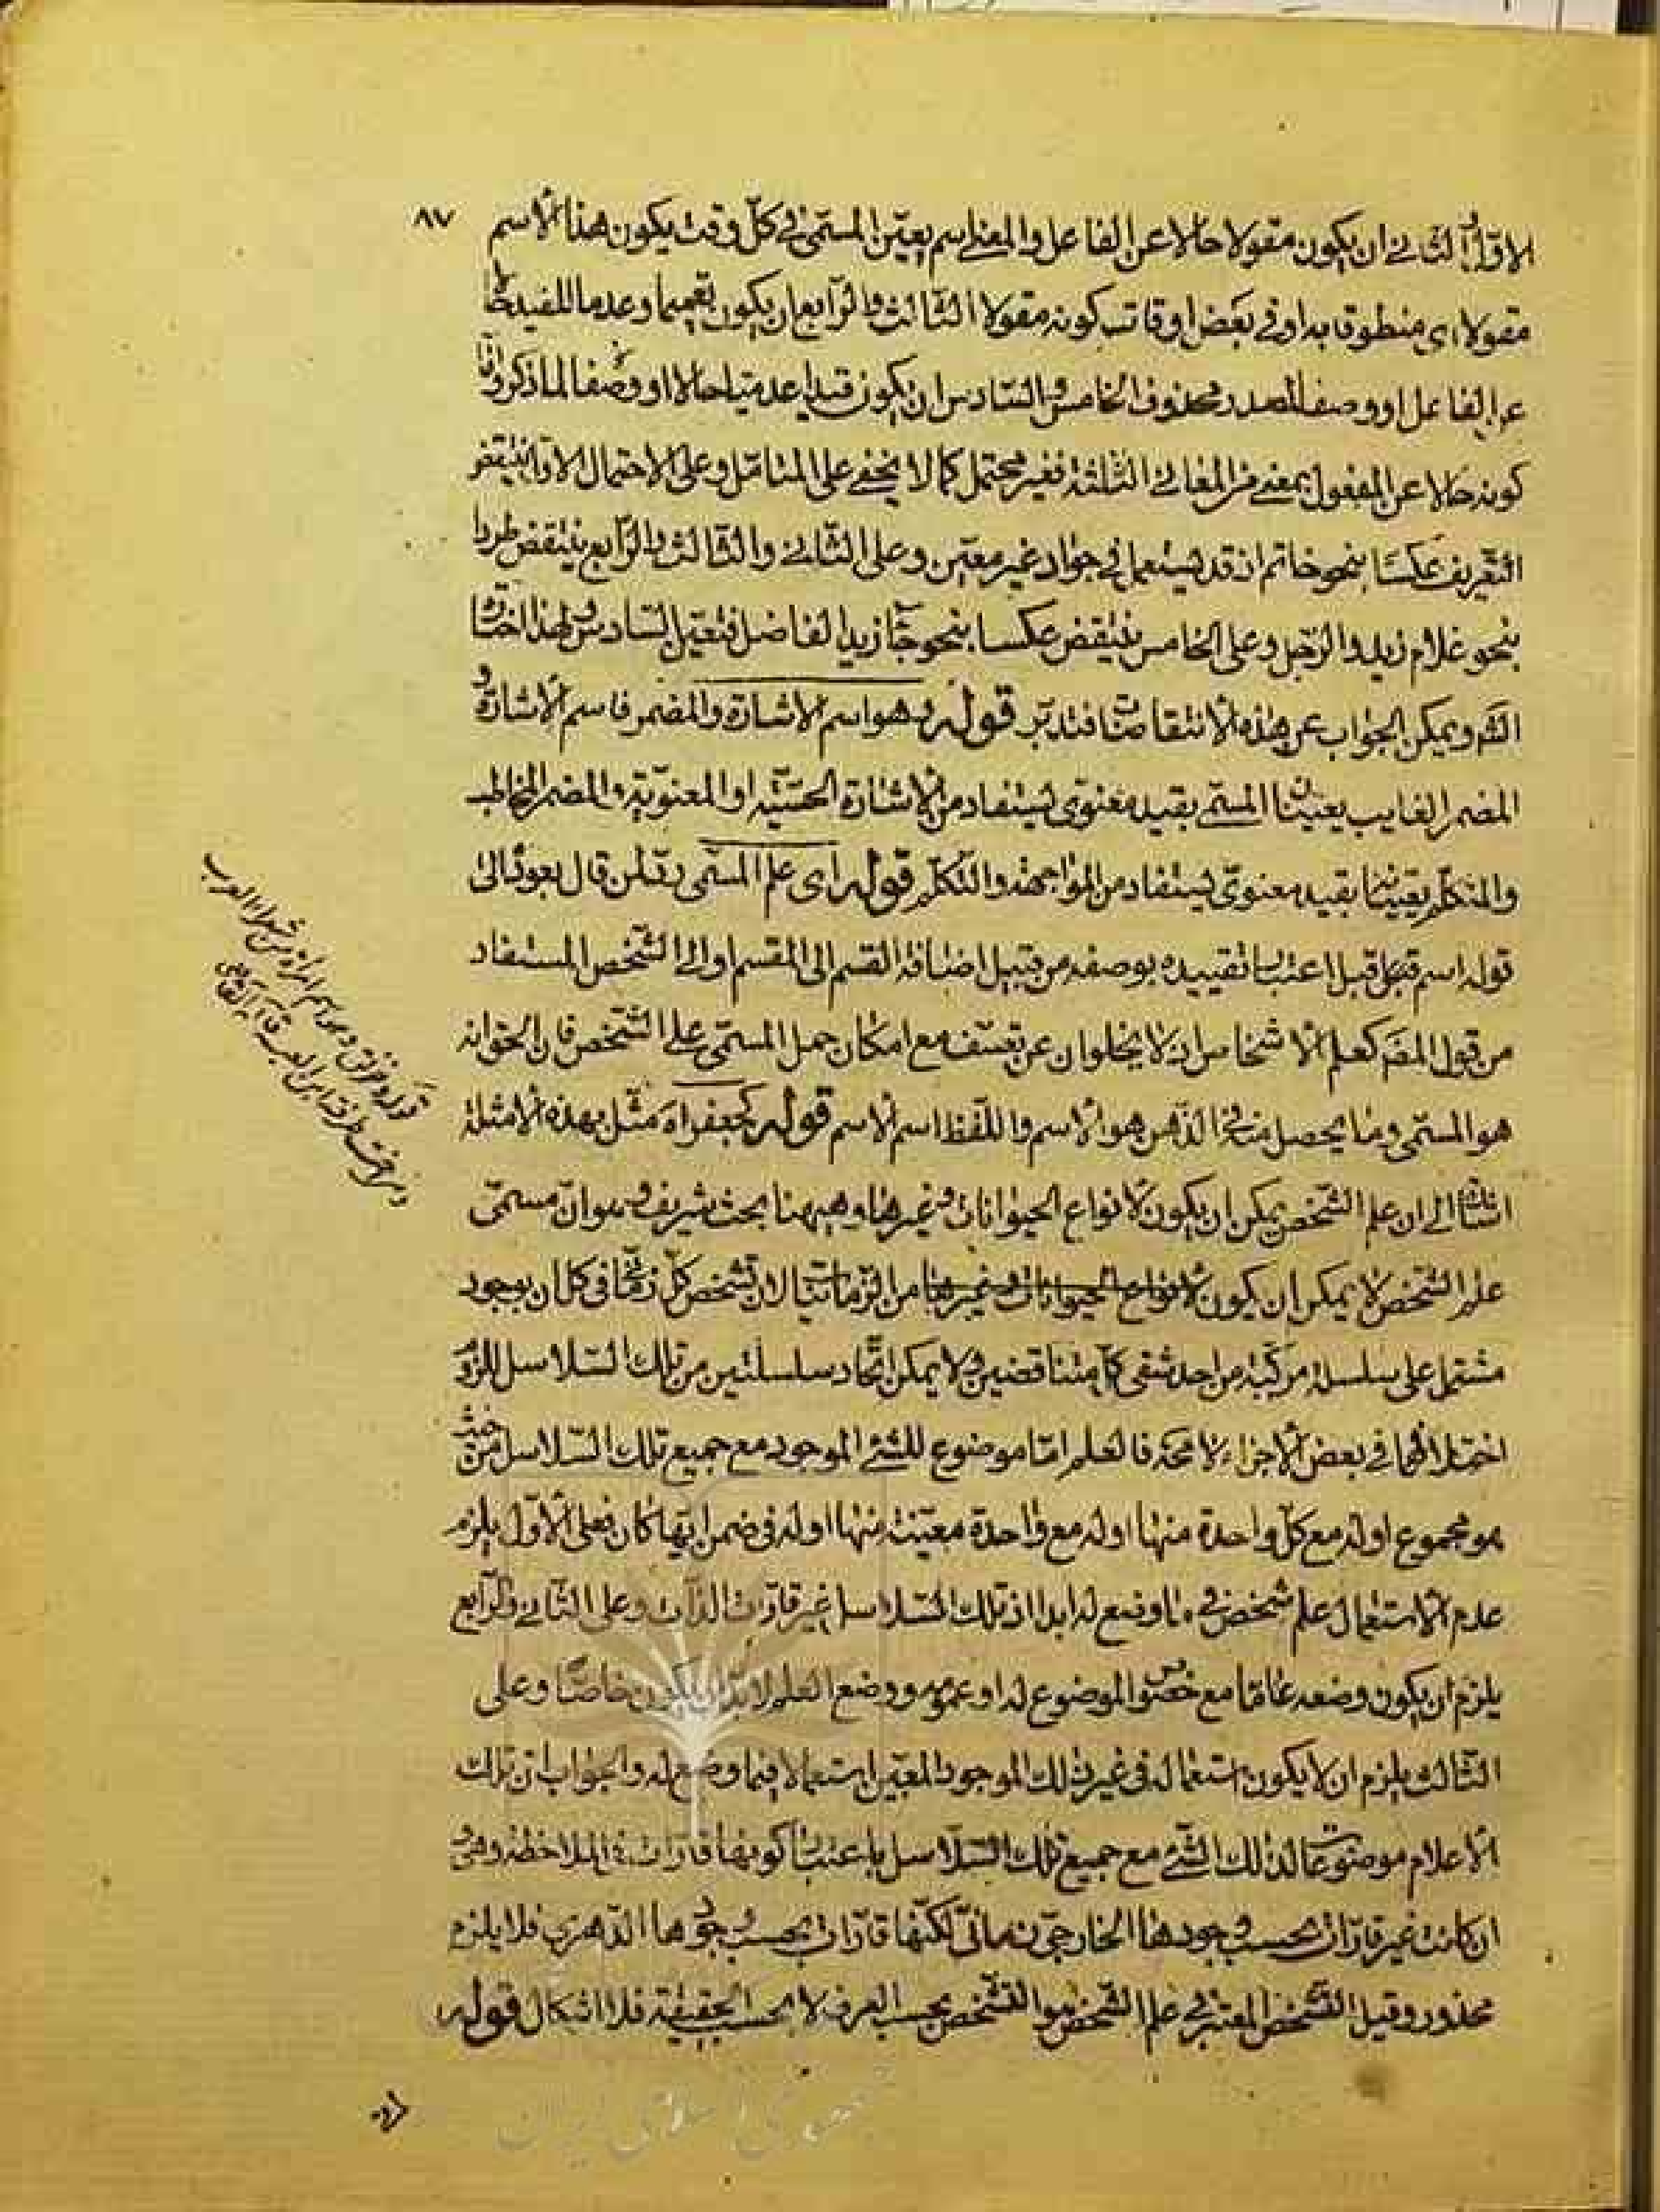 ٨٧
الاول الثانى ان يكون مقولا حالا عن الفاعل والمعنى اسم يعيّن المسمّى فى كلّ وقت يكون هذا الاسم
مقولا اى منطوقا به او فى بعض اوقات كونه مقولا الثالث والرّابع ان يكون تعميما وعدما للقيد حالا
عن الفاعل او وصفا لمصدر محذوف الخامس والسّادس ان يكون قيدا عدميّا حالا او وصفا لما ذكر وامّا
كونه حالا عن المفعول بمعنى من المعانى الثلثة فغير محتمل كما لا يخفى على المتأمّل وعلى الاحتمال الاوّل ينتقض
التعريف عكسا بنحو خاتم اذ قد يستعمل فى جواد غير معيّن وعلى الثانى والثالث والرّابع ينتقض طردا
بنحو غلام زيد والرّجل وعلى الخامس ينتقض عكسا بنحو جاء زيد الفاضل فتعيّن السّادس ولهذا اختاره
الشّم ويمكن الجواب عن هذه الانتقاضات فتدبّر قوله وهو اسم الاشارة والمضمر فاسم الاشارة و
المضمر الغايب يعيّنان المسمّى بقيد معنوى يستفاد من الاشارة الحسّيّة او المعنويّة والمضمر المخاطب
والمتكلّم يعيّنانه بقيد معنوىّ يستفاد من المواجهة والتّكلّم قوله اى علم المسمّى ردّ لمن قال بعوده الى
قوله اسم قبل اعتبار تقييده بوصفه من قبيل اضافة القسم الى المقسم او الى الشّخص المستفاد
من قول المصّ كعلم الاشخاص اذ لا يخلوان عن تعسّف مع امكان حمل المسمّى على الشّخص فان الحقّ انه
هو المسمّى وما يحصل منه فى الذّهن هو الاسم واللّفظ اسم الاسم قوله كجعفر اه مثّل بهذه الامثلة
اشارة الى ان علم الشّخص يمكن ان يكون لانواع الحيوانات وغيرها وههنا بحث شريف وهو انّ مسمّى
علم الشّخص لا يمكن ان يكون لانواع الحيوانات وغيرها من الزّمانيّات لان تشخّص كلّ زمانى كان بوجود
مشتمل على سلسلة مركّبة من احد شقى كلّ متناقضين ولا يمكن اتّحاد سلسلتين من تلك السّلاسل للزوم
اختلافهما فى بعض الاجزاء لا محة فالعلم امّا موضوع للشّئ الموجود مع جميع تلك السّلاسل من حيث
هو مجموع او له مع كلّ واحدة منها او له مع واحدة معيّنة منها او له فى ضمن ايّها كان فعلى الاوّل يلزم
عدم الاستعمال علم شخص فى ما وضع له ابدا اذ تلك السّلاسل غير قارّات الذّات وعلى الثّانى والرّابع
يلزم ان يكون وضعه عامّا مع خصوص الموضوع له او عمومه ووضع العلم لا بدّ ان يكون خاصّا وعلى
الثّالث يلزم ان لا يكون استعماله فى غير ذلك الموجود المعيّن استعمالا فيما وضع له والجواب ان تلك
الاعلام موضوعات لذلك الشّئ مع جميع تلك السّلاسل باعتبار كونها قارّات فى الملاحظة وهى
ان كانت غير قارّات بحسب وجودها الخارجىّ زمانىّ لكنّها قارّات بحسب وجودها الدّهرى فلا يلزم
محذور وقيل التّشخّص المعتبر فى علم الشّخص هو التّشخّص بحسب العرف لا بحسب الحقيقة فلا اشكال قوله
قوله وخرنق وهو اسم امرأة من شعراء العرب